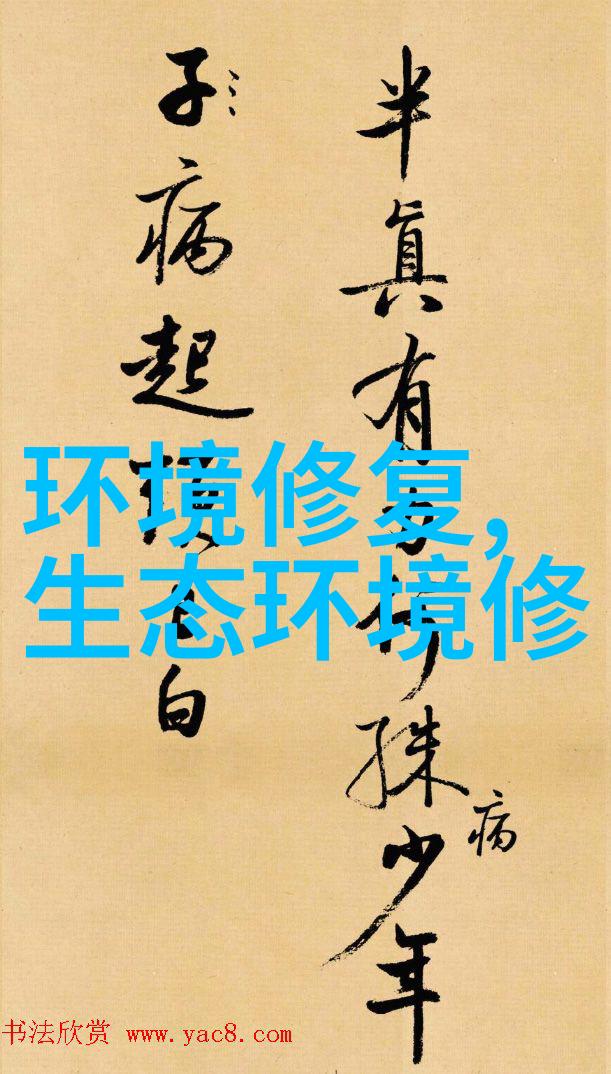 半真有殊少年
病
子病起白
环境修复,
生态环境修
书法欣赏 www.yac8.com